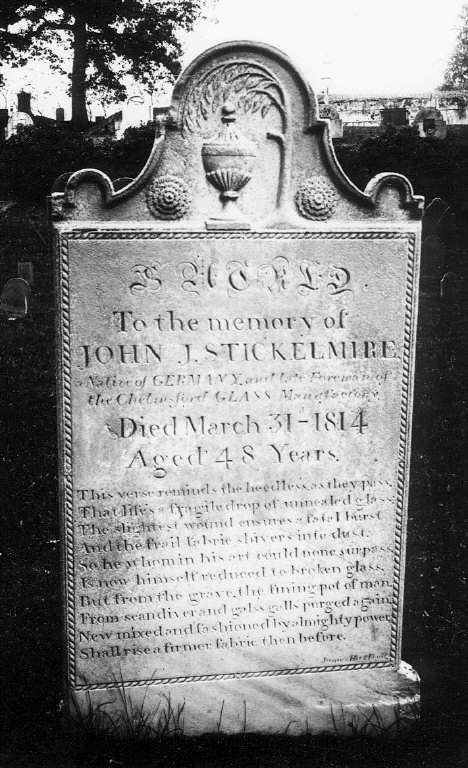 SACRED
To the memory of
JOHN J. STICKELMIRE
a Native of GERMANY, and late Foreman of
the Chelmsford GLASS Manufactory.
Died March 31-1814
Aged 48 Years.
This verse reminds the heedless as they pass,
That life's a fragile drop of unnealed glass
The slightest wound ensures a fatal burst
And the frail fabric shivers into dust.
So he whom in his art could none surpass,
Is now himself reduced to broken glass,
But from the grave, the fining pot of man,
From scandiver and galss galls purged again,
New mixed and fashioned by almighty power,
Shall rise a firmer fabric then before.